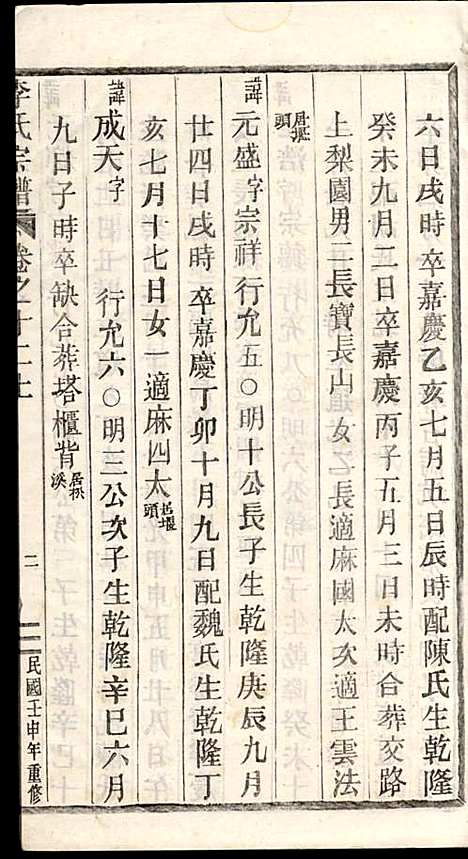 六日戌時卒嘉慶乙亥七月五日辰時配陳氏生乾隆
癸未九月二日卒嘉慶丙子五月三日未時合葬交路
上梨園男二長寶長山道女乙長適麻國太次適王雲法
諱元盛字宗祥行允五○明十公長子生乾隆庚辰九月居堰頭
廿四日戌時卒嘉慶丁卯十月九日配魏氏生乾隆丁
亥七月十七日女一適麻四太居堰頭
諱成天字 行允六○明三公次子生乾隆辛巳六月
九日子時卒缺合葬塔櫃背居拱溪
李氏宗譜 卷之十二上 二 民國壬申年重修